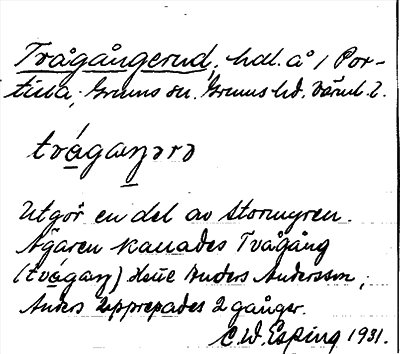 Tvågångerud, hdl. å 1 Por-
tilla, Grums sn. Grums hd. Värml. l.
tvágaŋərɒ
Utgör en del av Stormyren.
Ägaren kallades Tvågång
(tvágaŋ) Anders Andersson,
Anders upprepades 2 gånger.
C.W. Esping 1931.